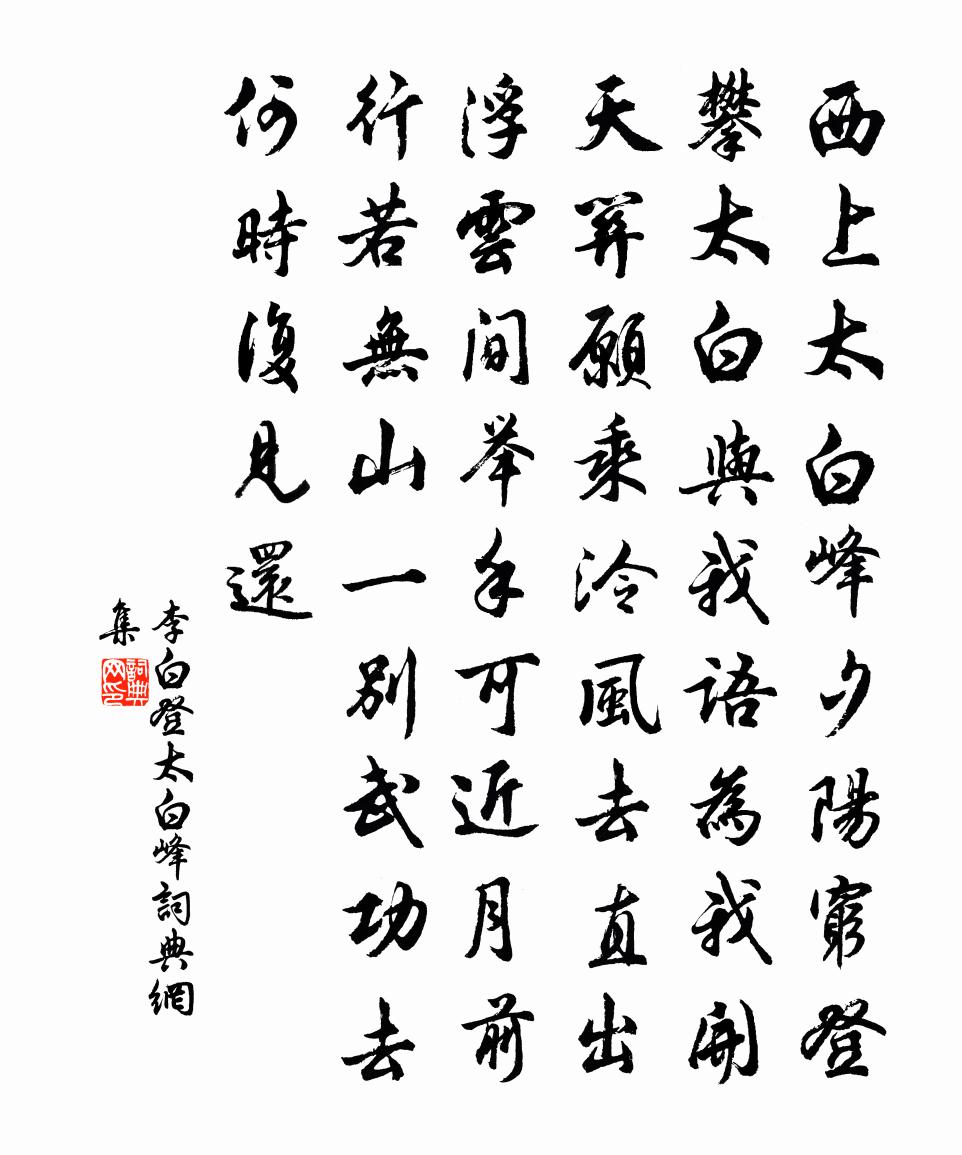 西上太白峰夕陽窮登
攀太白與我語為我開
天關願乘泠風去直出
浮雲間举手可近月前
行若無山一別武功去
何時復見還
李白登太白峰詞典網
集
詞典
网印